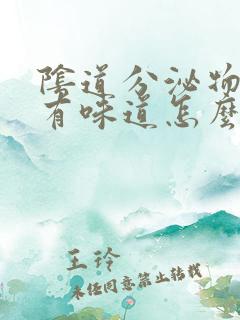 陰道分泌物
有味道怎麼
王玲
未经同意禁止转载